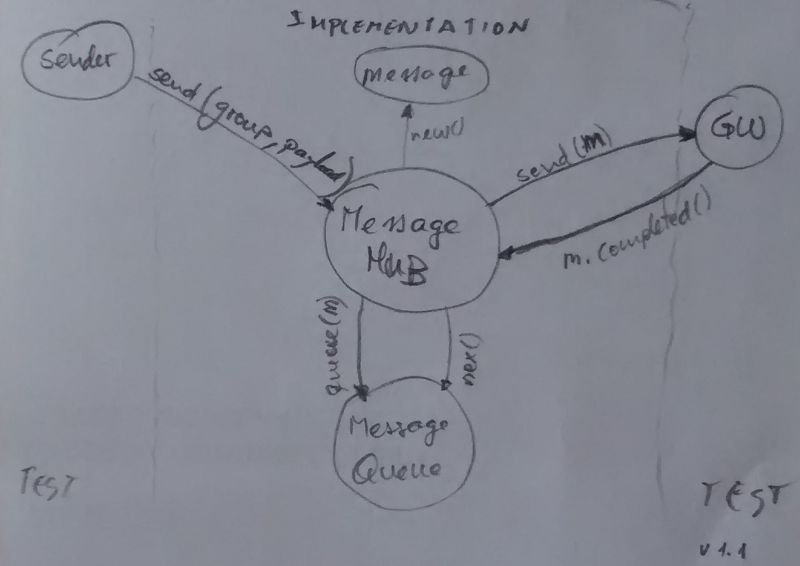 IMPLEMENTATION
Sender
message
send(group, payload)
new()
send(m)
GW
Message
HUB
m.completed()
queue(m)
nex()
Message
Queue
TEST
TEST
v 1.1